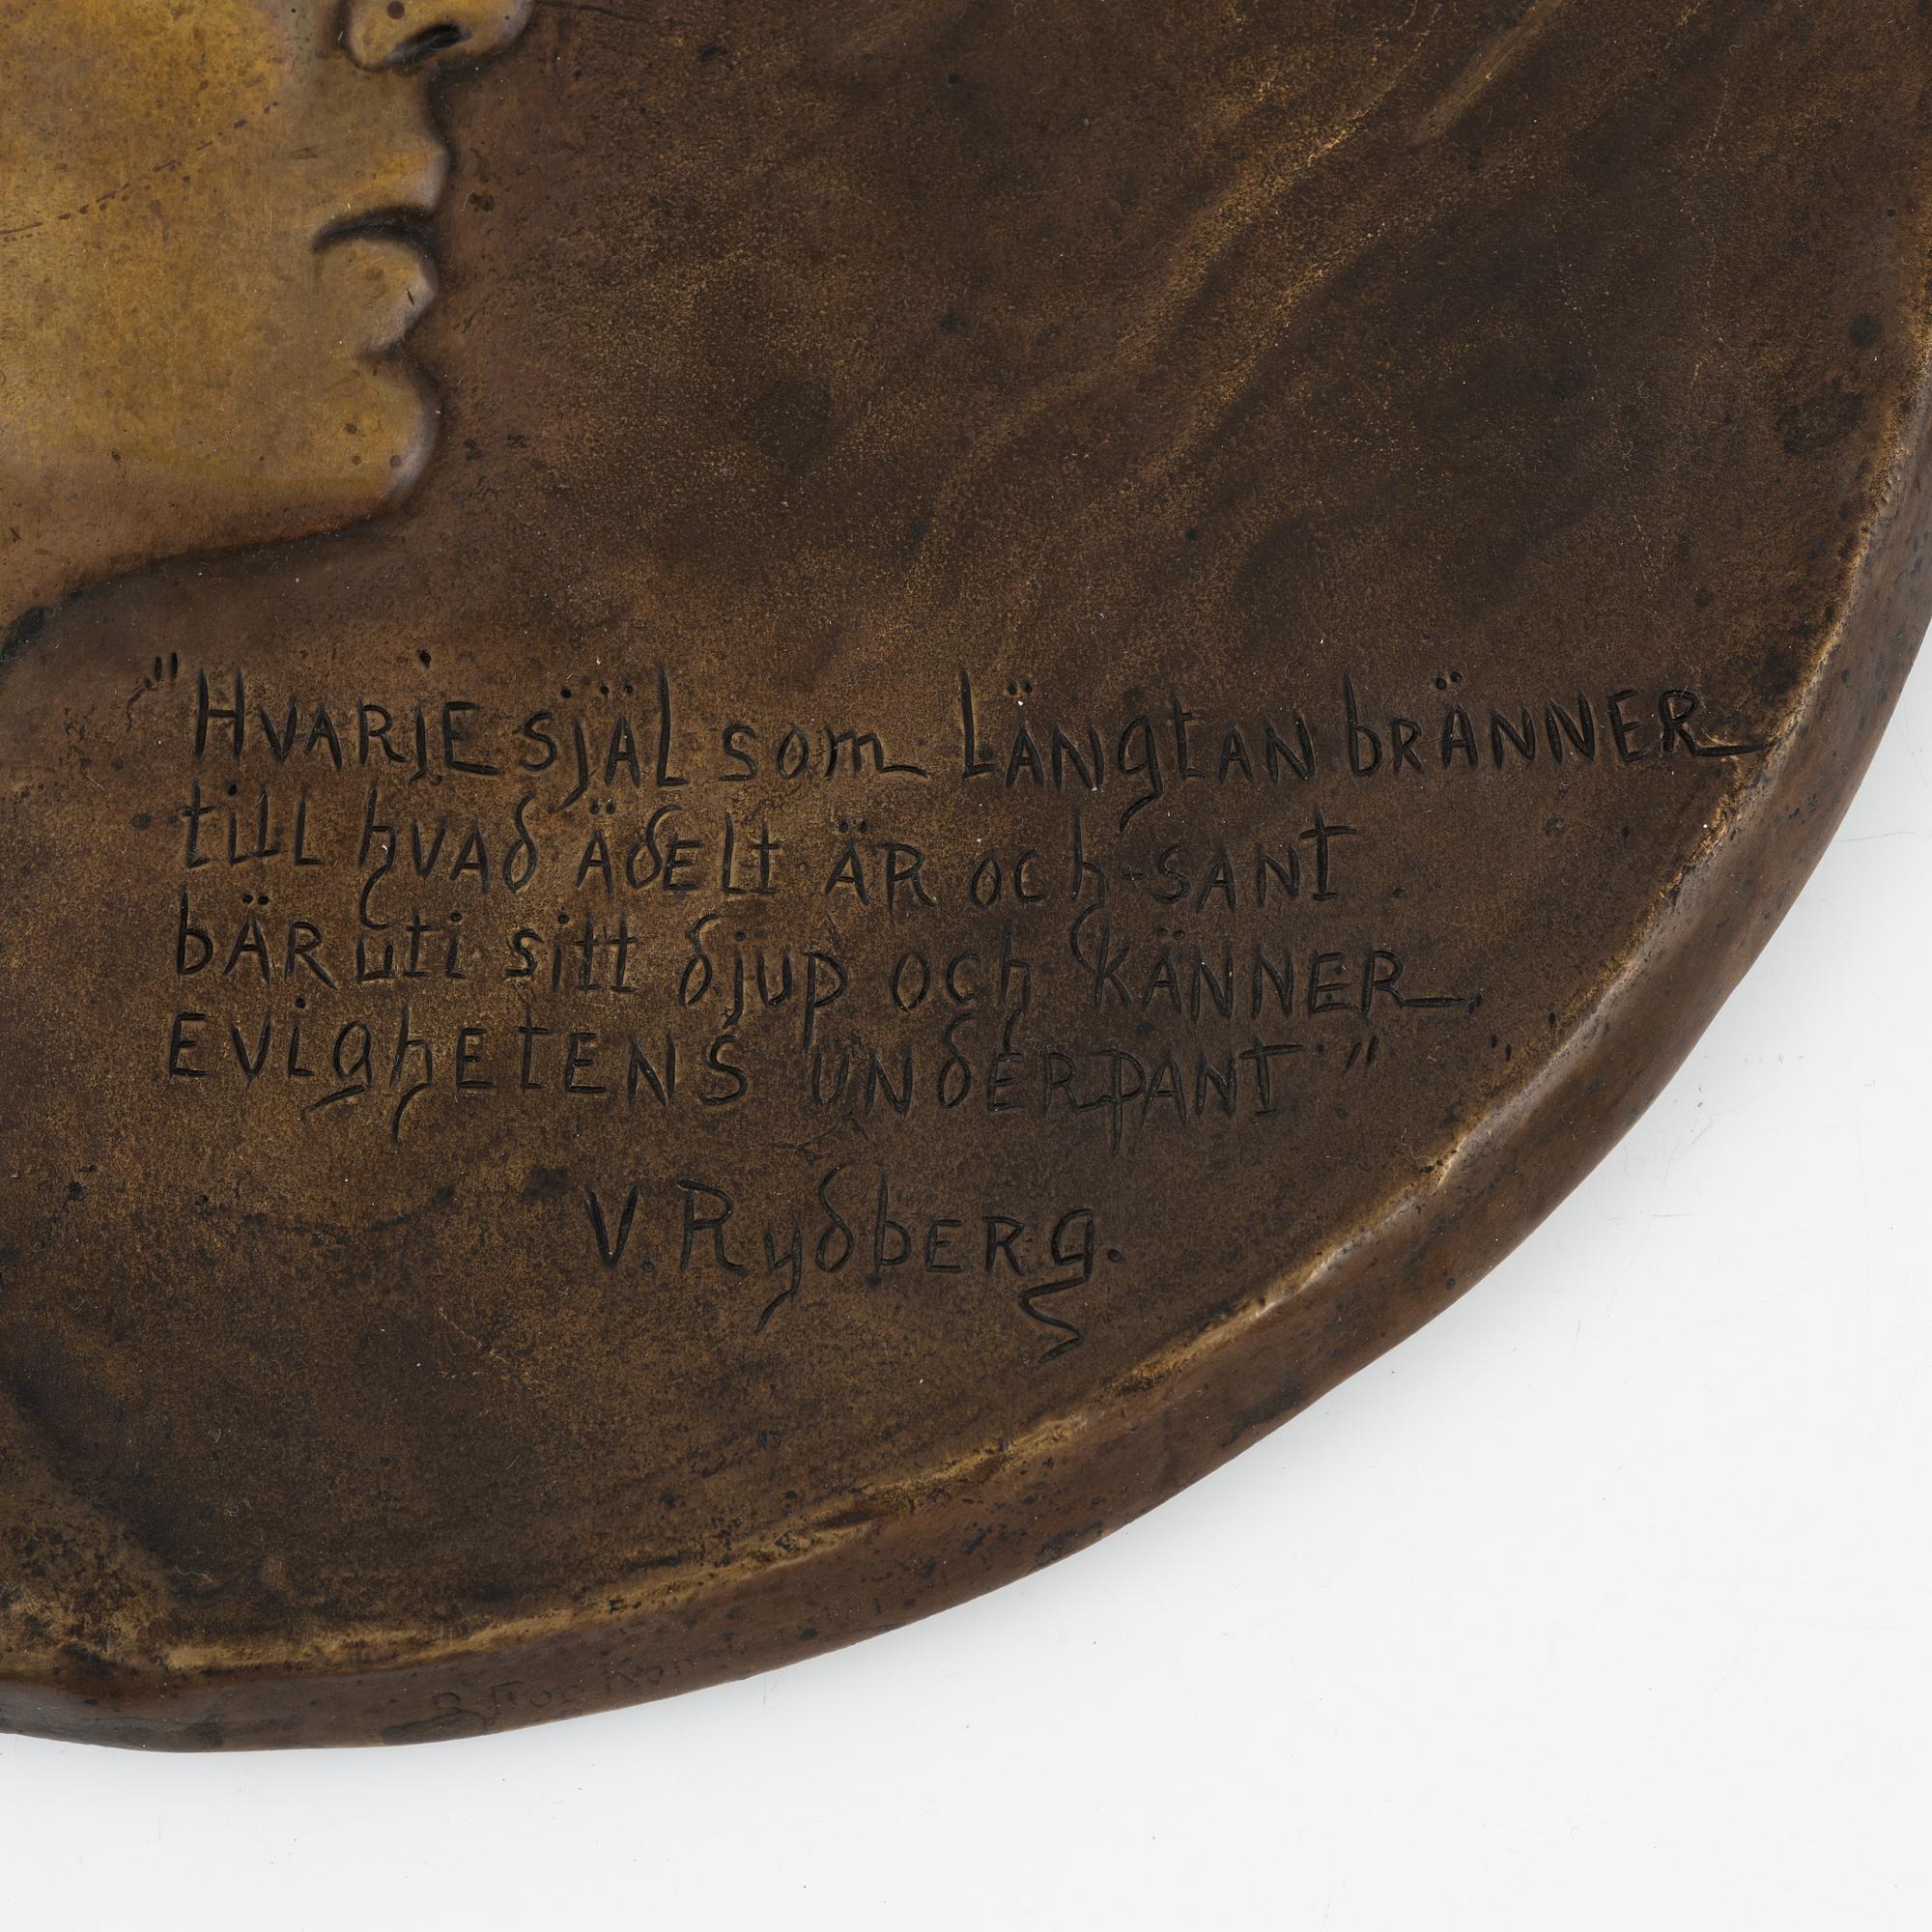 "HVARJE SJÄL som LÄNGTAN bRÄNNER
till hVAd ÄdELt ÄR och SANT
bÄR uti sitt djup och KÄNNER
EVIghEtENS UNdERPANT"
V. RydbERg.